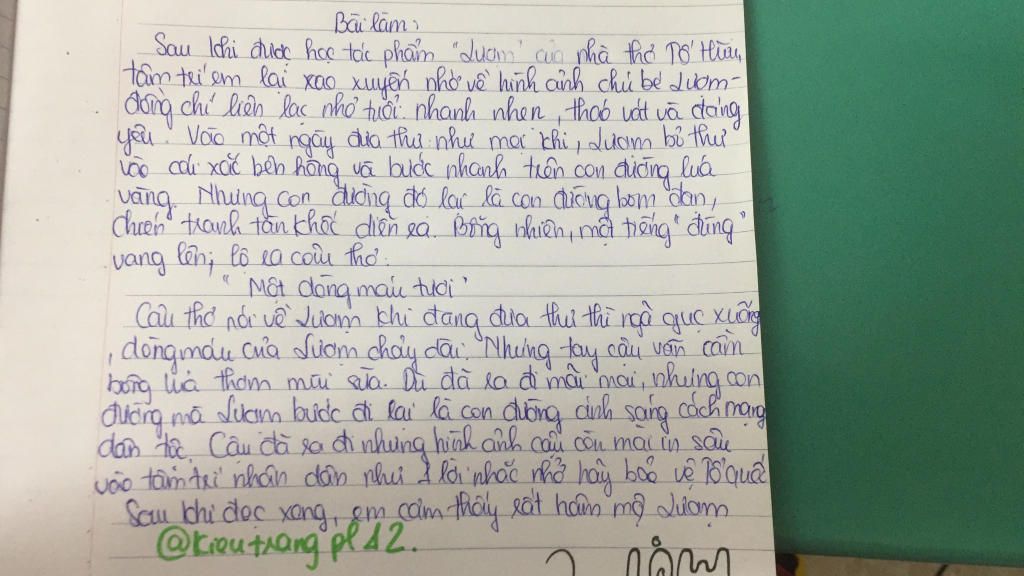 Bài làm:
Sau khi được học tác phẩm "Lượm" của nhà thơ Tố Hữu,
tâm trí em lại xao xuyến nhờ về hình ảnh chú bé Lượm -
đồng chí liên lạc nhỏ tuổi nhanh nhẹn, thoắt vát và đáng
yêu. Vào một ngày đưa thư như mọi khi, Lượm bỏ thư
vào cái xắc bên hông và bước nhanh trên con đường luá
vàng. Nhưng con đường đó lại là con đường bom đạn,
chiến tranh tàn khốc diễn ra. Bỗng nhiên, một tiếng "đùng"
vang lên, lộ ra câu thơ.
"Một dòng máu tươi"
Câu thơ nói về Lượm khi đang đưa thư thì ngã gục xuống
, dòng máu của Lượm chảy dài. Nhưng tay cậu vẫn cầm
bông luá thơm mùi sữa. Dù đã ra đi mãi mãi, nhưng con
đường mà Lượm bước đi lại là con đường ánh sáng cách mạng
dân tộc. Cậu đã ra đi nhưng hình ảnh cậu còn mãi in sâu
vào tâm trí nhân dân như 1 lời nhắc nhở hãy bảo vệ Tổ quốc
Sau khi đọc xong, em cảm thấy rất hâm mộ Lượm
@kieutrangpl12.